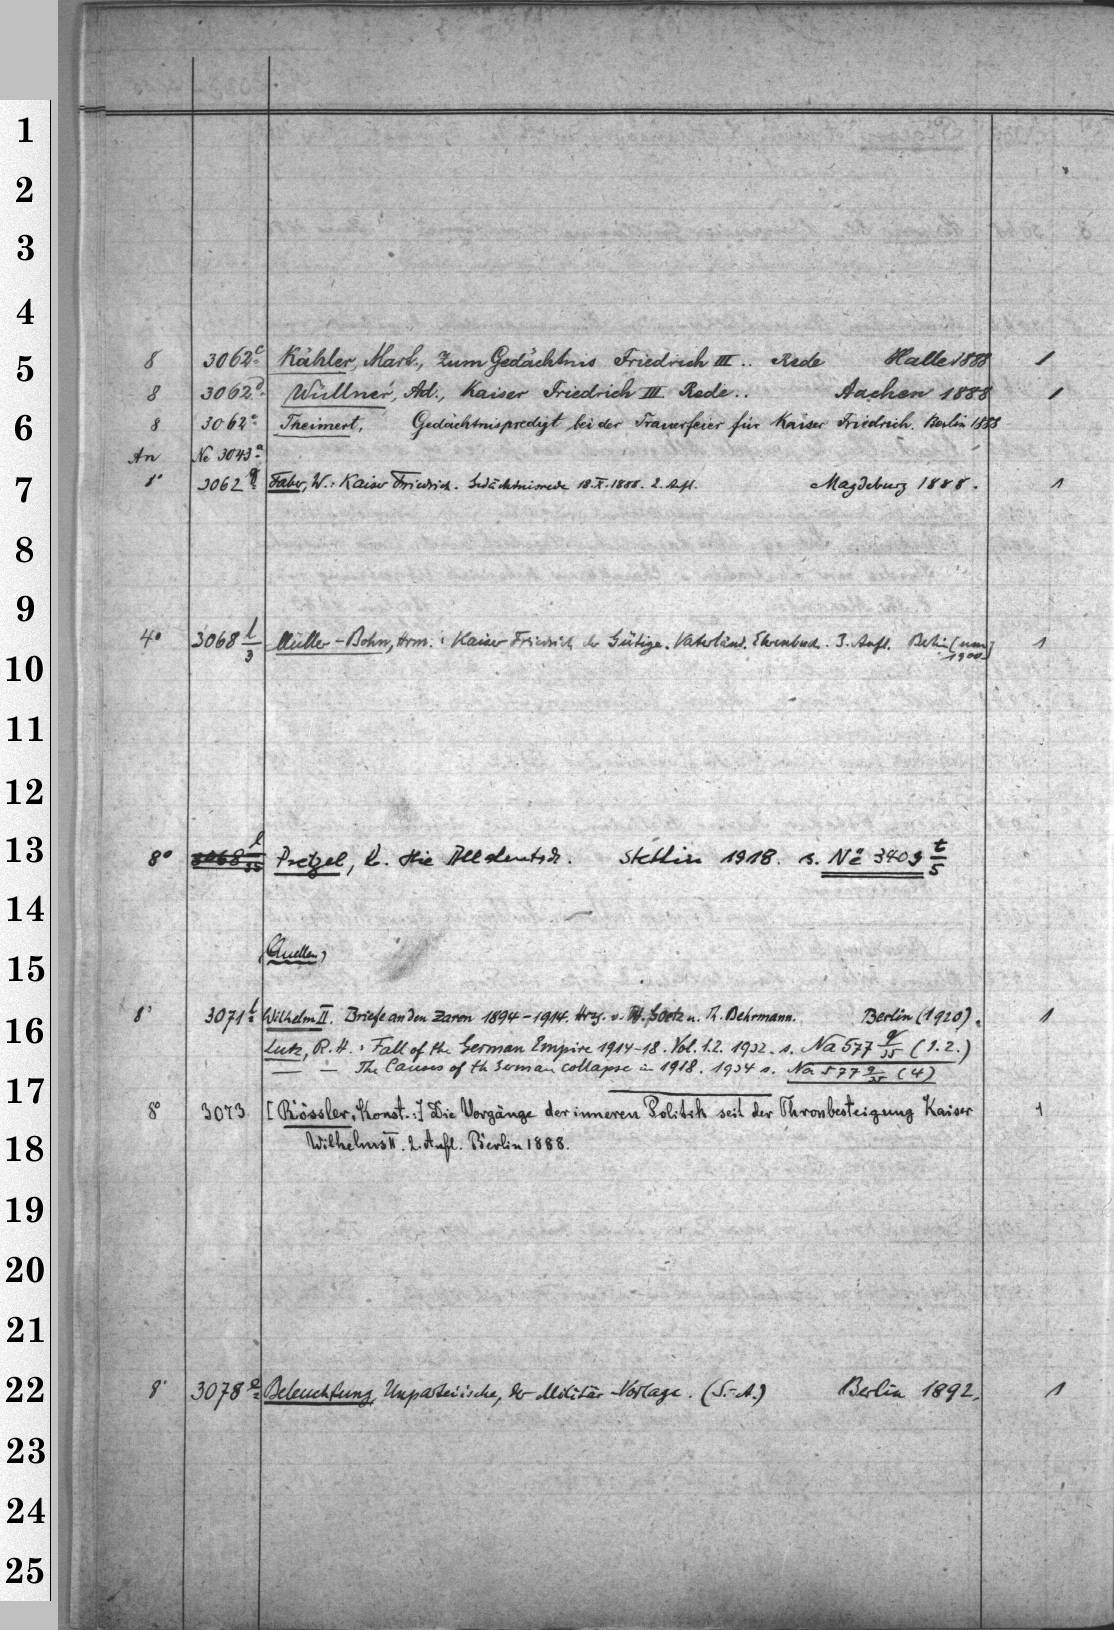 1
2
3
4
5
8 3062c Kähler, Mart., Zum Gedächtnis Friedrich III .. Rede Halle 1888 1
8 3062d Wüllner, Ad., Kaiser Friedrich III Rede .. Aachen 1888 1
6
8 3062e Theimert, Gedächtnispredigt bei der Trauerfeier für Kaiser Friedrich. Berlin 1888
An Ne 3043a
7
8° 3062g Faber, W.: Kaiser Friedrich. Gedächtnisrede 18.X.1888. 2. Afl. Magdeburg 1888. 1
8
9
4° 3068 l/3 Müller-Bohn, Hrm.: Kaiser Friedrich der Gütige. Vaterländ. Ehrenbuch. 3. Aufl. Berlin (um 1900) 1
10
11
12
13
8° 3068 l/35 Pretzel, C. Die Alldeutsch. Stettin 1918. s. Ne 3409 t/5
14
Quellen,
15
8° 3071 Wilhelm II. Briefe an den Zaren 1894-1914. Hrsg. v. W. Goetz u. Th. Behrmann. Berlin (1920). 1
16
Lutz, R. H.: Fall of the German Empire 1914-18. Vol. 1.2. 1932. s. Na 577 q/35 (1.2.)
— — The Causes of th German collapse in 1918. 1934 s. Na 577 q/35 (4)
17
8° 3073 [Rössler, Konst.:] Die Vorgänge der inneren Politik seit der Thronbesteigung Kaiser 1
18
Wilhelms II. 2. Aufl. Berlin 1888.
19
20
21
22
8° 3078 Beleuchtung, Unparteiische, der Militär-Vorlage. (S.-A.) Berlin 1892. 1
23
24
25